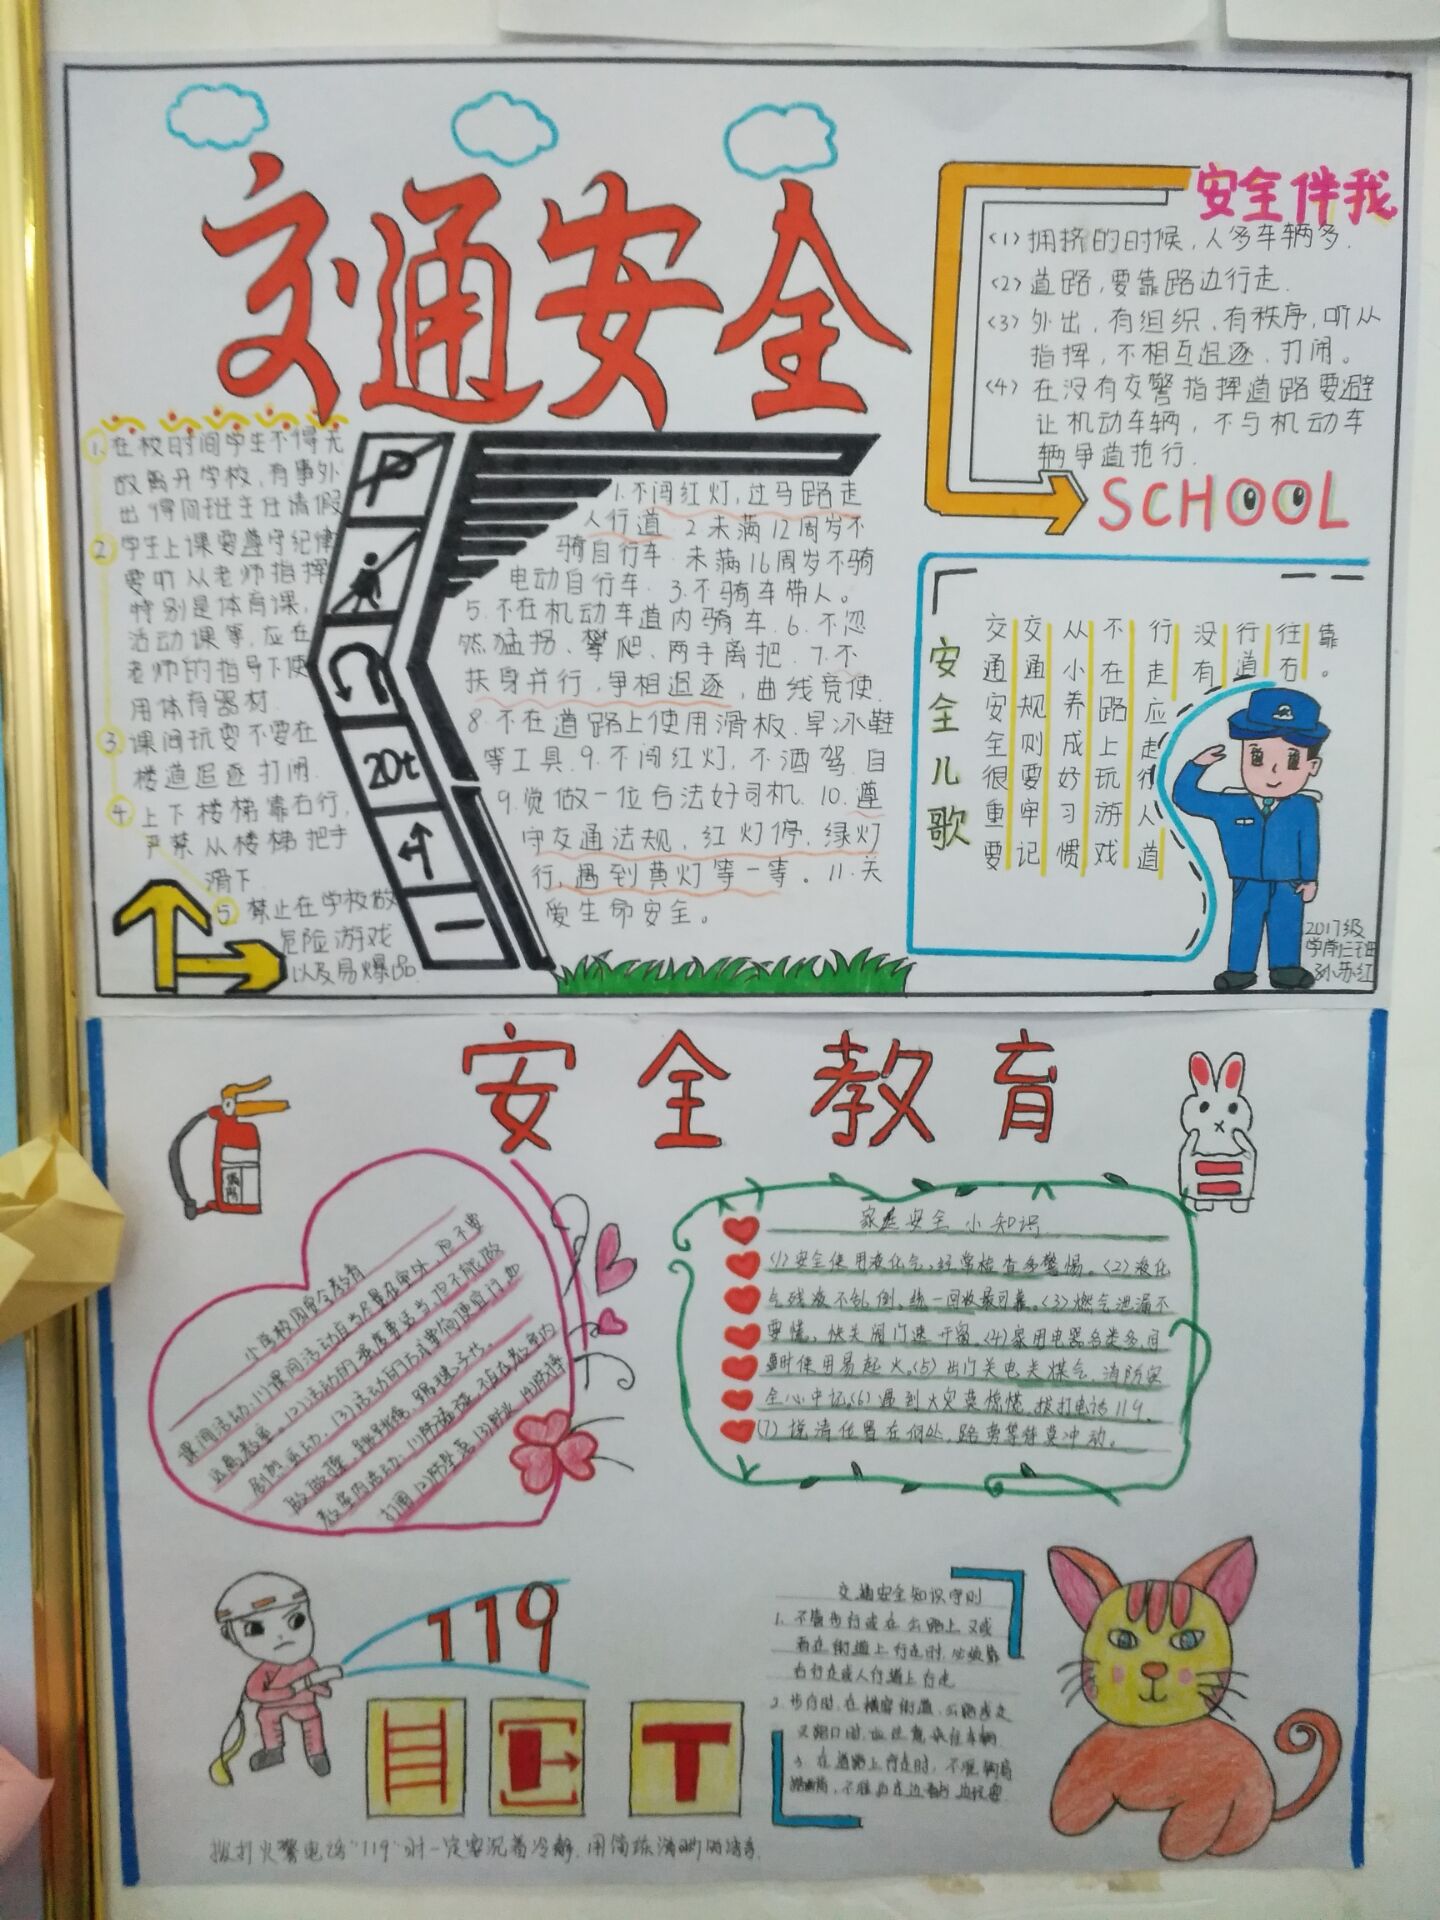 交通安全
1.在校时间学生不得无
故离开学校,有事外
出得向班主任请假
2 学生上课要遵守纪律
要听从老师指挥
特别是体育课,
活动课等,应在
老师的指导下使
用体育器材.
3 课间玩耍不要在
楼道追逐打闹.
4 上下楼梯靠右行,
严禁从楼梯把手
滑下.
5 禁止在学校做
危险游戏
以及易爆品.
P
20t
1.不闯红灯,过马路走
人行道 2.未满12周岁不
骑自行车.未满16周岁不骑
电动自行车.3.不骑车带人。
5.不在机动车道内骑车.6.不忽
然猛拐、攀爬、两手离把.7.不
扶身并行,争相追逐,曲线竞使.
8.不在道路上使用滑板、旱冰鞋
等工具.9.不闯红灯,不酒驾.自
9.觉做一位合法好司机.10.遵
守交通法规,红灯停,绿灯
行,遇到黄灯等一等。11.关
爱生命安全。
安全伴我
SCHOOL
<1>拥挤的时候,人多车辆多.
<2>道路,要靠路边行走.
<3>外出,有组织,有秩序,听从
指挥,不相互追逐、打闹。
<4>在没有交警指挥道路要避
让机动车辆,不与机动车
辆争道抢行.
安全儿歌
交通安全很重要
交通规则要牢记
从小养成好习惯
不在路上玩游戏
行走应走行人道
没有
行道
往右
靠。
2017级
学前仨班
孙苏红
安全教育
消防
小学校园安全教育
课间活动:(1)课间活动应当尽量在室外,但不要
远离教室。(2)活动的强度要适当,也不能做
剧烈运动。(3)活动的方式要简便易行,如
做做操、跳跳绳、踢毽子长。
教室内活动:(1)防磕碰 不在在教室内
打闹 (2)防坠落 (3)防火 (4)防摔
家庭安全小知识
(1)安全使用液化气,经常检查多警惕。(2)液化
气残液不乱倒,统一回收最可靠。(3)燃气泄漏不
要慌,快关阀门速开窗。(4)家用电器各类多,同
时使用易起火。(5)出门关电关煤气,消防安
全心中记。(6)遇到火灾莫惊慌,拨打电话119。
(7)说清位置在何处,路旁等待莫冲动。
119
交通安全知识守则
1.不管步行或在公路上又或
者在街道上行走时,必须靠
右行走或人行道上行走
2.步行时,在横穿街道、公路或走
叉路口时,应注意来往车辆.
3.在道路上行走时,不
拨打火警电话"119"时一定要沉着冷静.用简练清晰的语言.